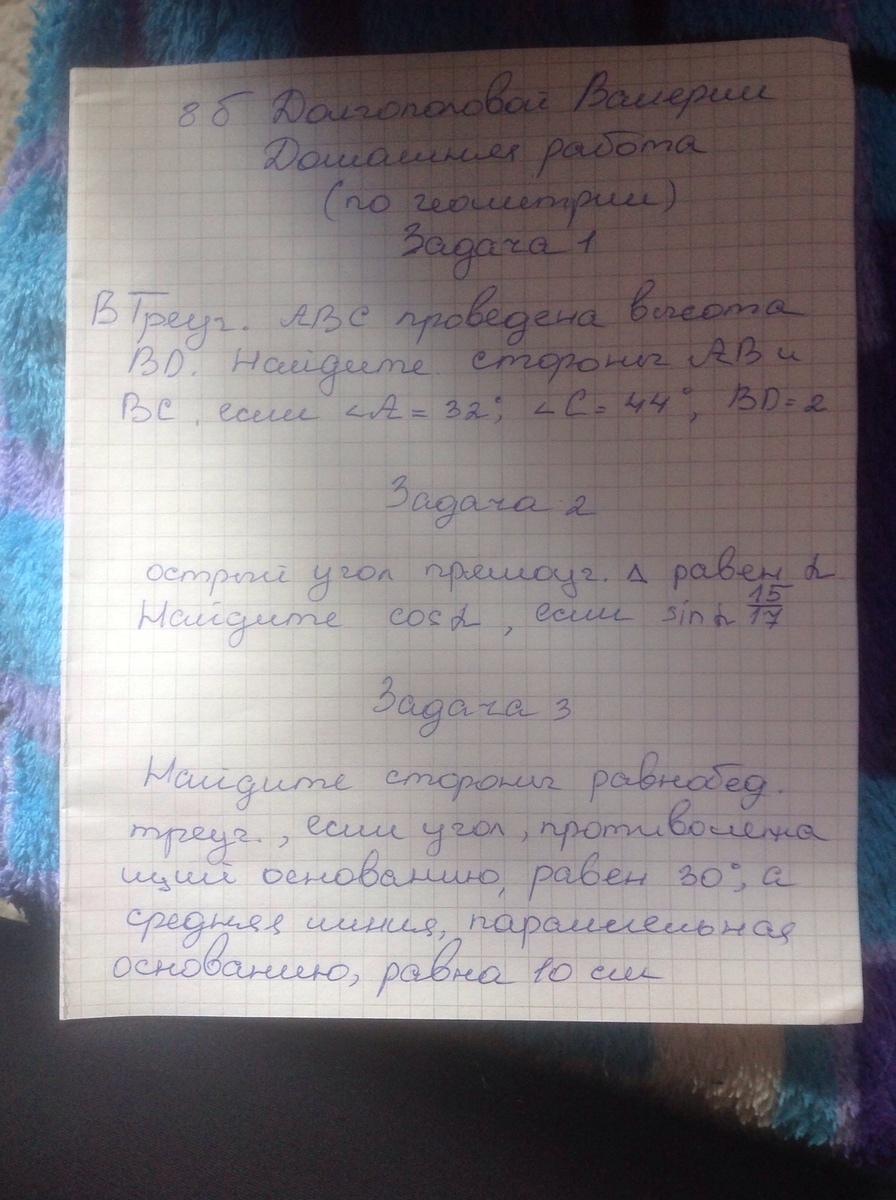 8б Долгополовой Валерии
Домашняя работа
(по геометрии)
Задача 1
В Треуг. ABC проведена высота
BD. Найдите стороны AB и
BC, если ∠A = 32°, ∠C = 44°, BD = 2
Задача 2
острый угол прямоуг. Δ равен α
Найдите cos α, если sin α 15/17
Задача 3
Найдите стороны равнобед.
треуг., если угол, противолежа
ищий основанию, равен 30°, а
средняя линия, параллельная
основанию, равна 10 см